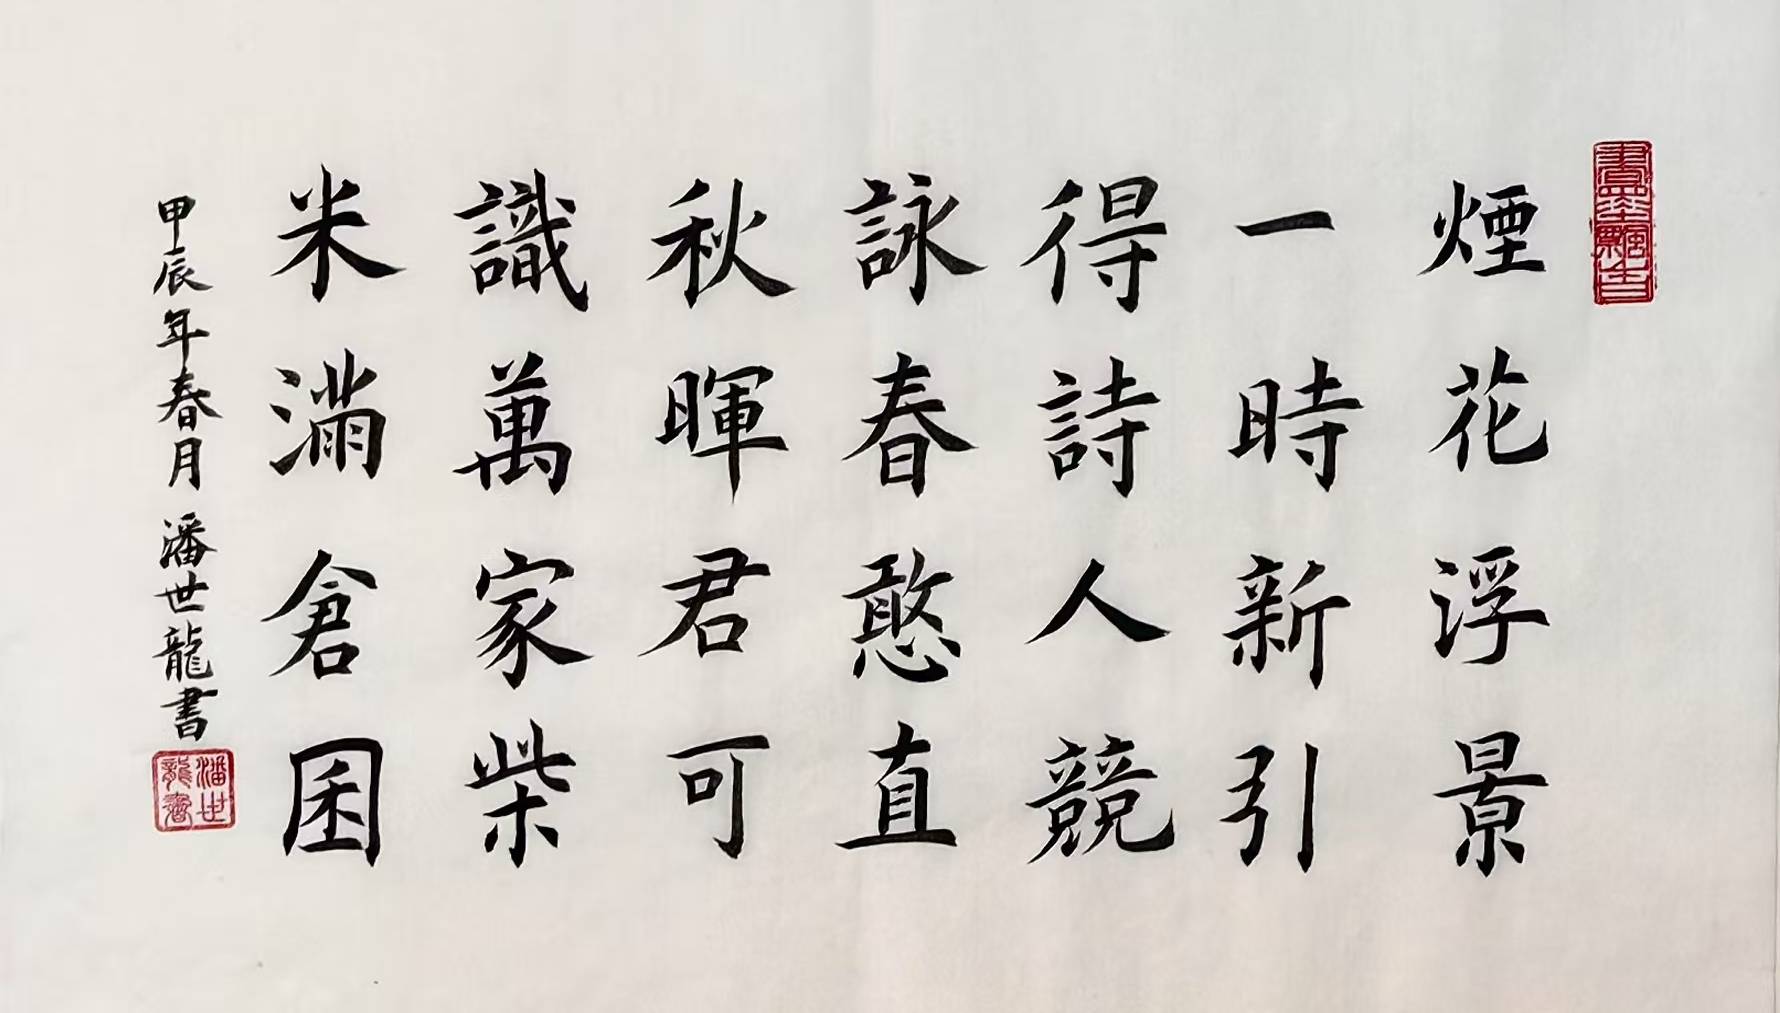 書墨飄香
煙花浮景
一時新引
得詩人競
詠春憨直
秋暉君可
識萬家柴
米滿倉囷
甲辰年春月潘世龍書
潘世
龍書